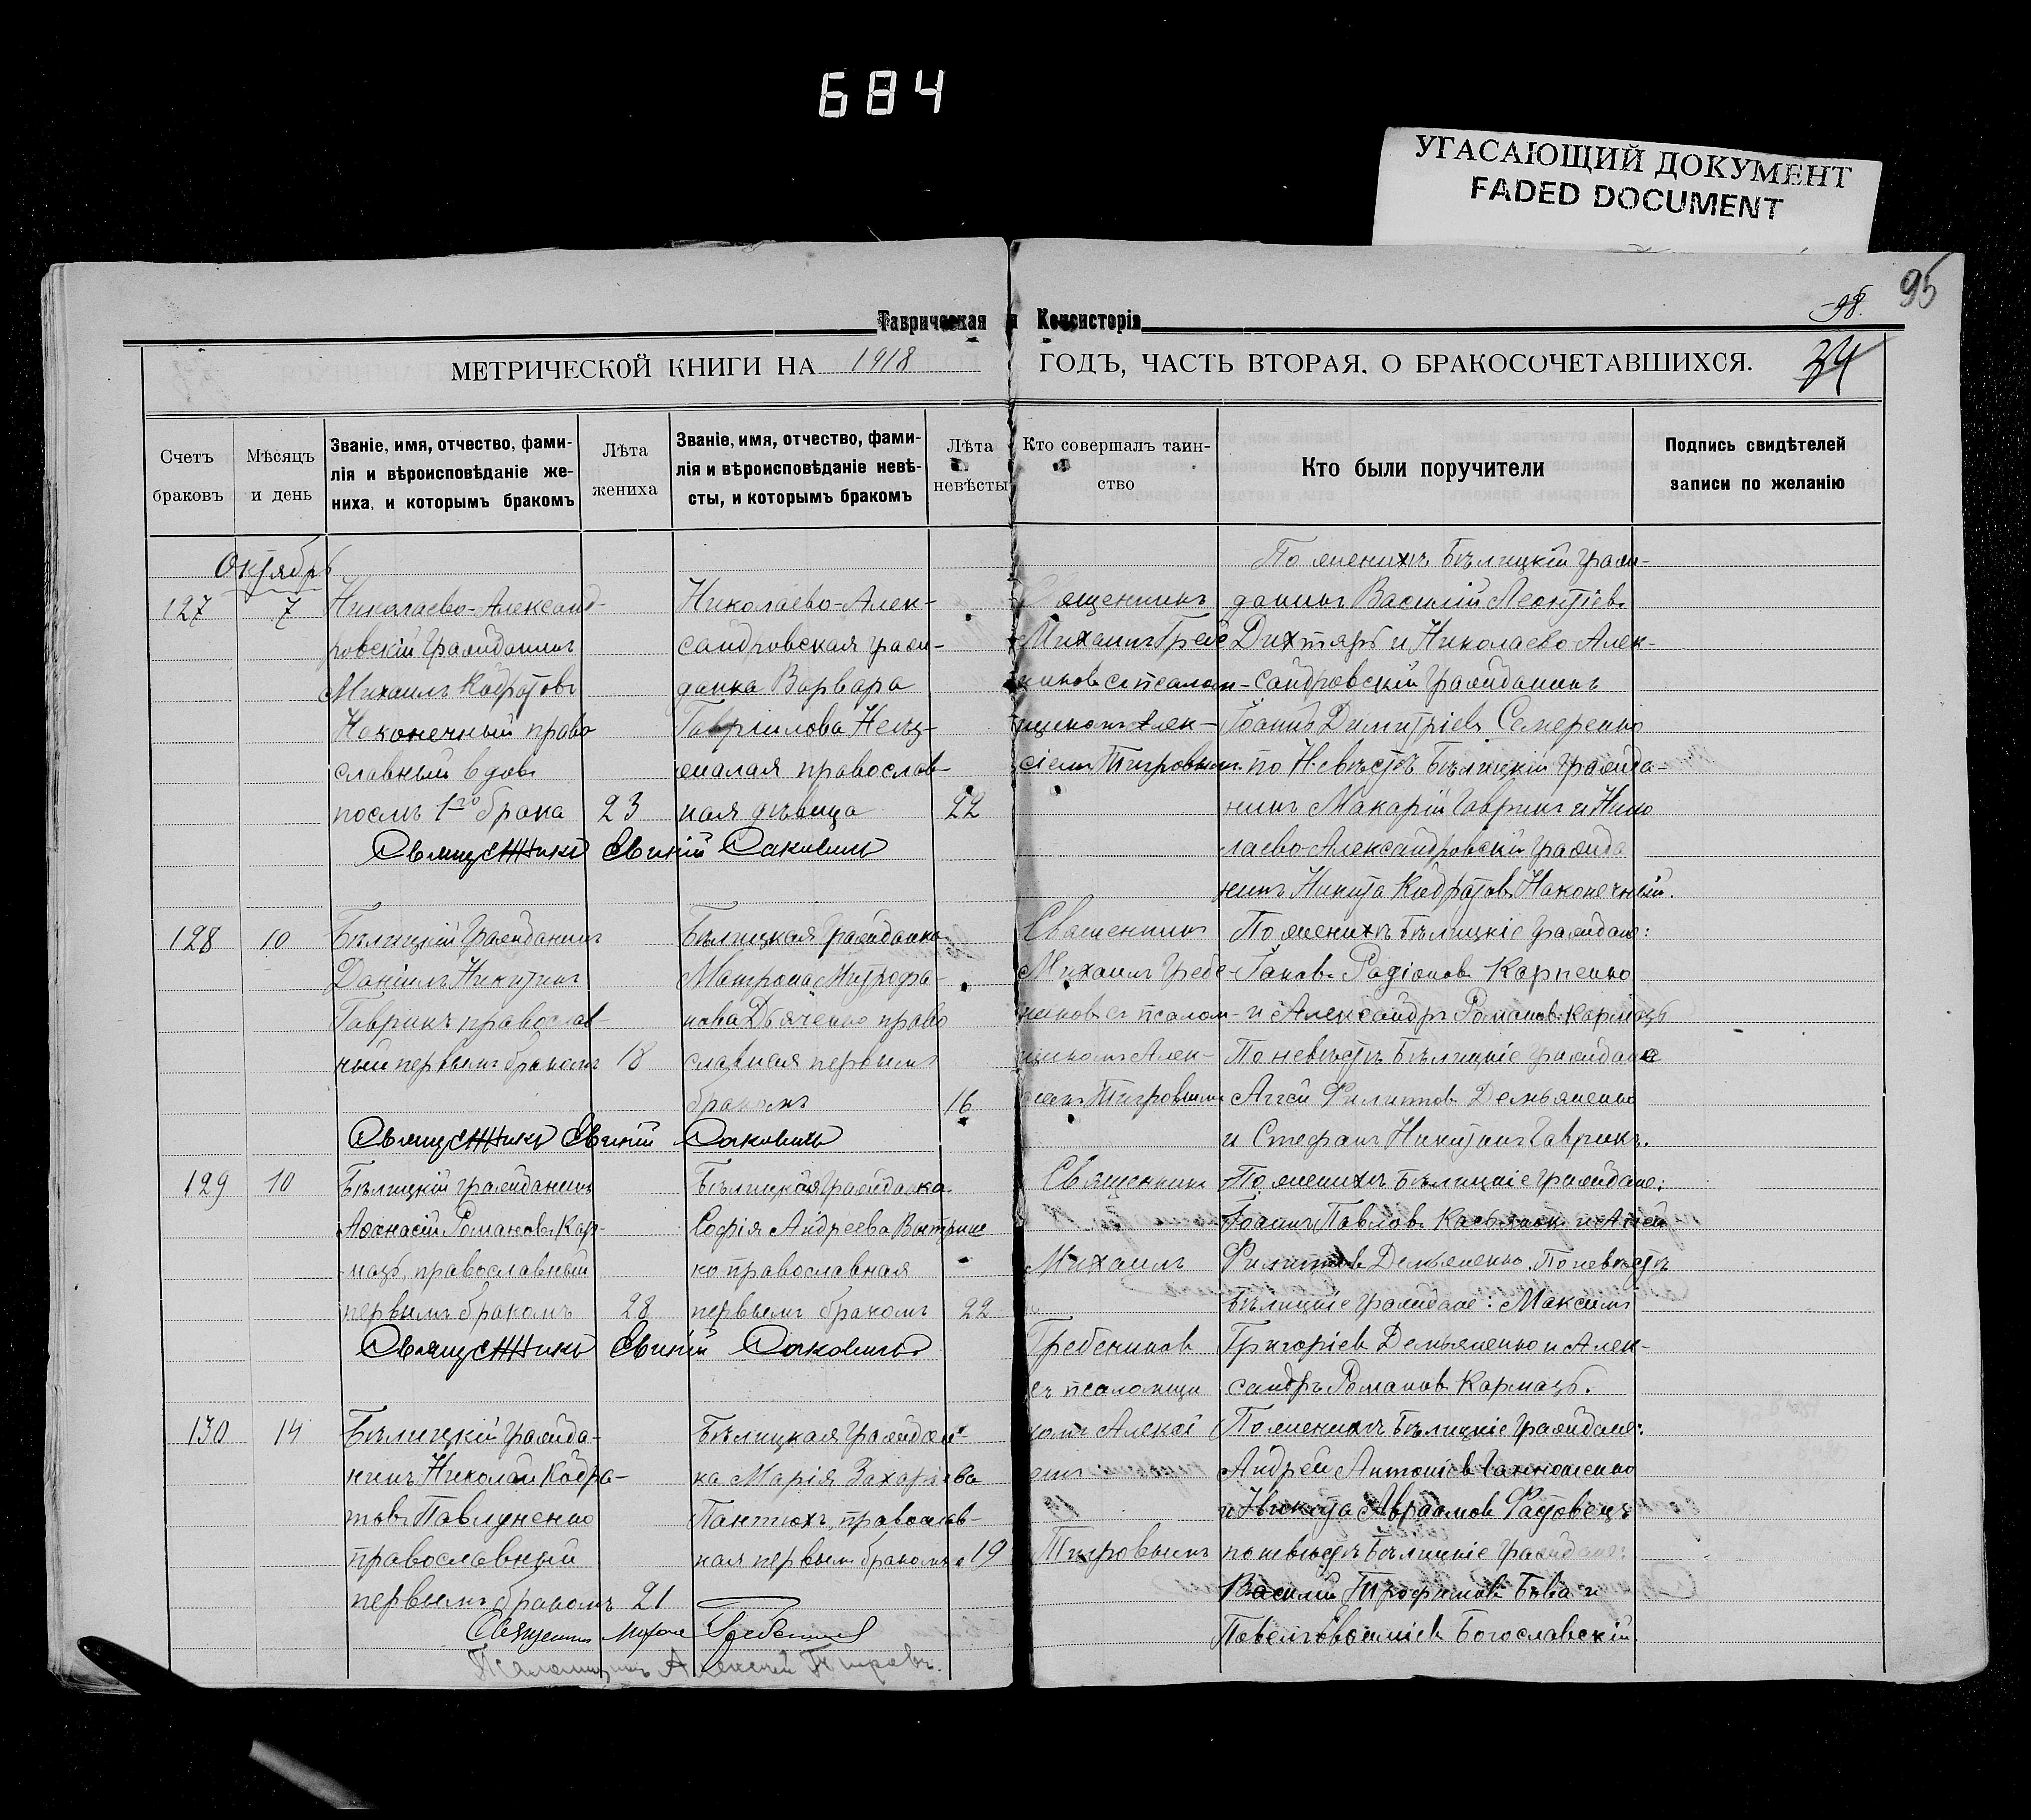 684
УГАСАЮЩИЙ ДОКУМЕНТ
FADED DOCUMENT
95
98.
Таврическая Консисторія
МЕТРИЧЕСКОЙ КНИГИ НА 1918 ГОДЪ, ЧАСТЬ ВТОРАЯ, О БРАКОСОЧЕТАВШИХСЯ. 34
Счетъ
браковъ
Мѣсяцъ
и день
Званіе, имя, отчество, фами-
лія и вѣроисповѣданіе же-
ниха, и которымъ бракомъ
Лѣта
жениха
Званіе, имя, отчество, фами-
лія и вѣроисповѣданіе невѣ-
сты, и которымъ бракомъ
Лѣта
невѣсты
Кто совершалъ таин-
ство
Кто были поручители
Подпись свидѣтелей
записи по желанію
Октябрь
127
7
Николаево-Александ-
ровскій гражданинъ
Михаилъ Кодратовъ
Наконечный право
славный вдовъ
послѣ 1го брака
23
Николаево-Алек-
сандровская граж-
данка Варвара
Гавріилова
православ-
ная дѣвица
22
Священникъ
Михаилъ Гребе
никовъ съ псалом-
щикомъ Алек-
сіемъ Тигровымъ
По женихѣ Бѣлицкій граж-
данинъ Василій Леонтіевъ
Дихтярь и Николаево Алек-
сандровскій гражданинъ
Іоаннъ Димитріевъ Семеренко
по Невѣстѣ Бѣлицкій гражда-
нинъ Макарій Гаврикъ и Нико
лаево Александровскій гражда
нинъ Никита Кодратовъ Наконечный.
Священникъ Евгеній
128
10
Бѣлицкій гражданинъ
Даніилъ Никитинъ
Гаврикъ православ-
ный первымъ бракомъ
18
Бѣлицкая гражданка
Матрона Митрофа-
нова Дьяченко право
славная первымъ
бракомъ
16
Священникъ
Михаилъ Гребе-
никовъ съ псалом-
щикомъ Алек-
сіемъ Тигровымъ
По женихѣ Бѣлицкіе граждане:
Іаковъ Родіоновъ Карпенко
и Александръ Романовъ Кармазь
По невѣстѣ Бѣлицкіе граждане
Аггей Филипповъ Демьяненко
и Стефанъ Никитинъ Гаврикъ.
Священникъ Евгеній
129
10
Бѣлицкій гражданинъ
Аѳонасій Романовъ Кар-
мазь, православный
первымъ бракомъ
28
Бѣлицкая гражданка
Софія Андреева
ко православная
первымъ бракомъ
22
Священникъ
Михаилъ
Гребениковъ
съ псаломщи
комъ Алексі
емъ
Тигровымъ
По женихѣ Бѣлицкіе граждане:
Іоаннъ Павловъ Касьянъ и Агей
Филипповъ Демьяненко. По невѣстѣ
Бѣлицкіе граждане: Максимъ
Григоріевъ Демьяненко и Алек-
сандръ Романовъ Кармазь.
Священникъ Евгеній
130
14
Бѣлицкій гражда-
нинъ Николай Кодра-
товъ Павлуненко
православный
первымъ бракомъ
21
Бѣлицкая граждан-
ка Марія Захаріева
Пантюхъ, православ-
ная первымъ бракомъ
19
По женихѣ Бѣлицкіе граждане:
Андрей Антоніевъ
и Никита Авраамовъ Фастовецъ
по невѣстѣ Бѣлицкіе граждане:
Василій Трофимовъ Бѣба и
Павелъ Богославскій.
Священникъ Михаилъ Гребениковъ
Псаломщикъ Алексѣй Тигровъ.